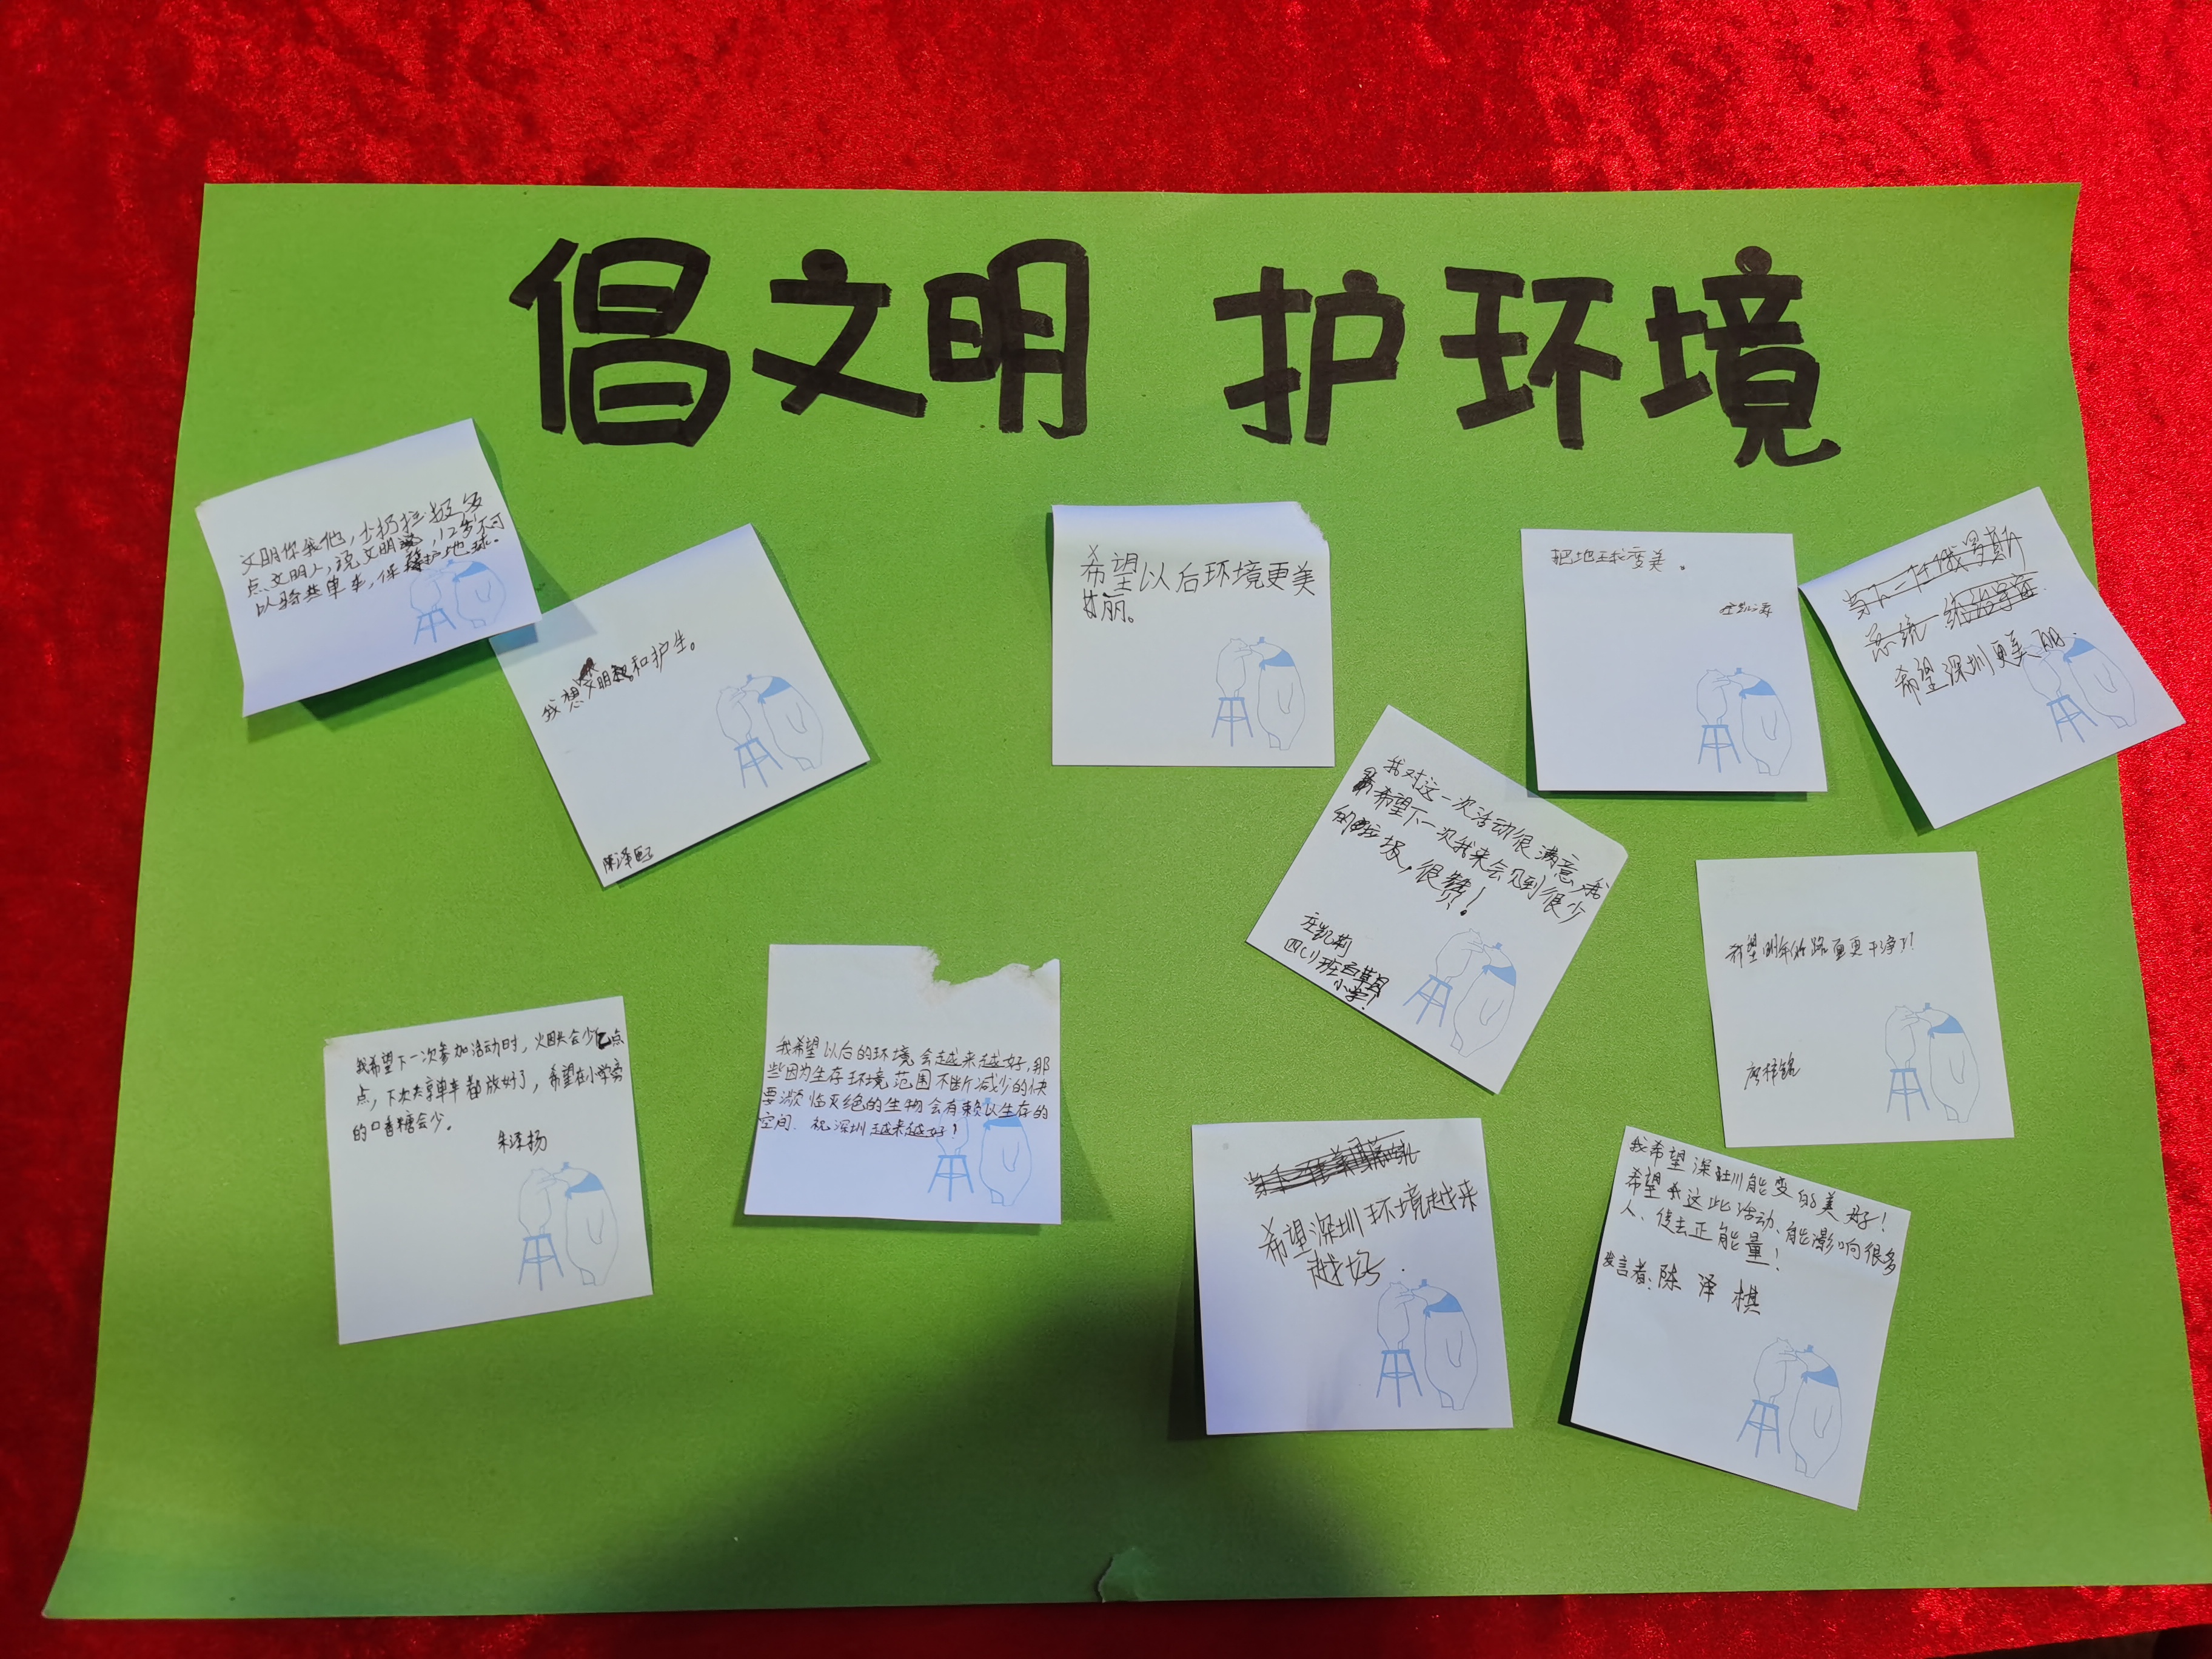 倡文明 护环境
文明你我他，土扔垃圾多
点文明人，说文明，12岁不可
以骑共单车，保护地球。
我想文明和护生。
陈泽
希望以后环境更美
丽。
把地球变美。
希望深圳更美丽.
我对这一次活动很满意，我
希望下一次我来会见到很少
的垃圾，很赞！
庄凯莉
四(1)班
小学！
希望明年的路面更干净了！
廖梓铭
我希望下一次参加活动时，火因头会少点
点，下次共享单车都放好了，希望在小学旁
的口香糖会少。
朱泽扬
我希望以后的环境会越来越好，那
些因为生存环境范围不断减少的快
要濒临灭绝的生物会有赖以生存的
空间. 祝深圳越来越好！
希望深圳环境越来
越好.
我希望深圳能变的美好！
希望此活动、能影响很多
人、传去正能量！
发言者：陈泽棋